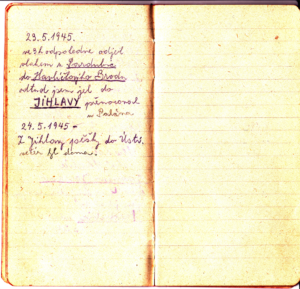 23.5.1945.
ve 3 h odpoledne odjel
vlakem z Pardubic
do Havlíčkého Brodu
odtud jsem jel do
JIHLAVY přenocoval
u Palána
24.5.1945 -
Z Jihlavy pěšky do Ústí.
večer byl doma.